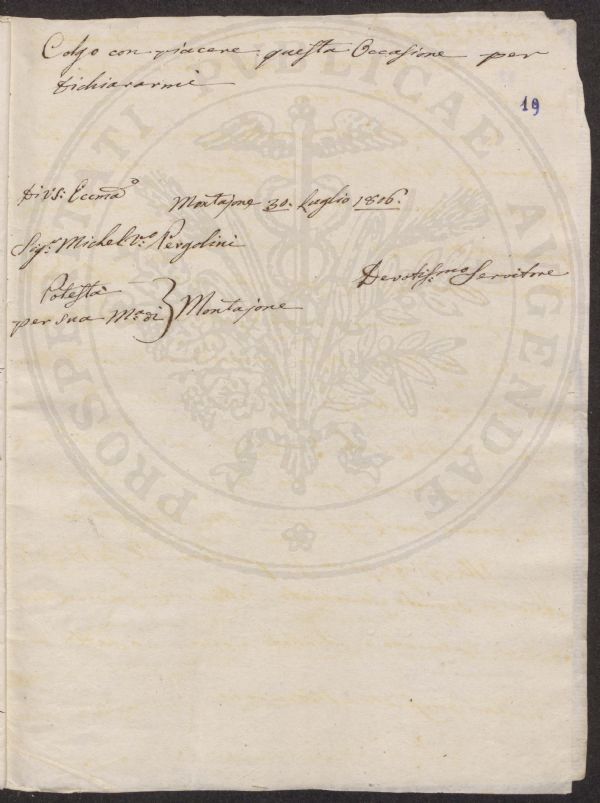 Colgo con piacere questa Occasione per
dichiararmi
19
Di VS: Eccma
Montajone 30. Luglio 1806.
Sigr. Michel Vo. Pergolini
Devotissmo Servitore
Potestà
per sua Mà. di } Montajone
PROSPERITATI PUBLICAE AUGENDAE